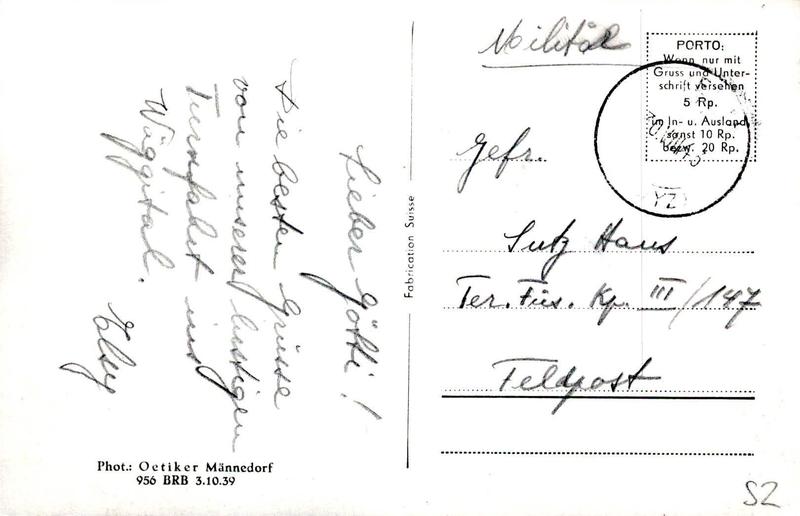 Lieber Götti!
Die besten Grüsse
von unserer lustigen
Turnfahrt ins
Wäggital.
Elsy
Phot.: Oetiker Männedorf
956 BRB 3.10.39
Fabrication Suisse
Militär
PORTO:
Wenn nur mit
Gruss und Unter-
schrift versehen
5 Rp.
im In- u. Ausland
sonst 10 Rp.
bezw. 20 Rp.
Gefr.
Sutz Hans
Ter. Füs. Kp. III/147
Feldpost
SZ